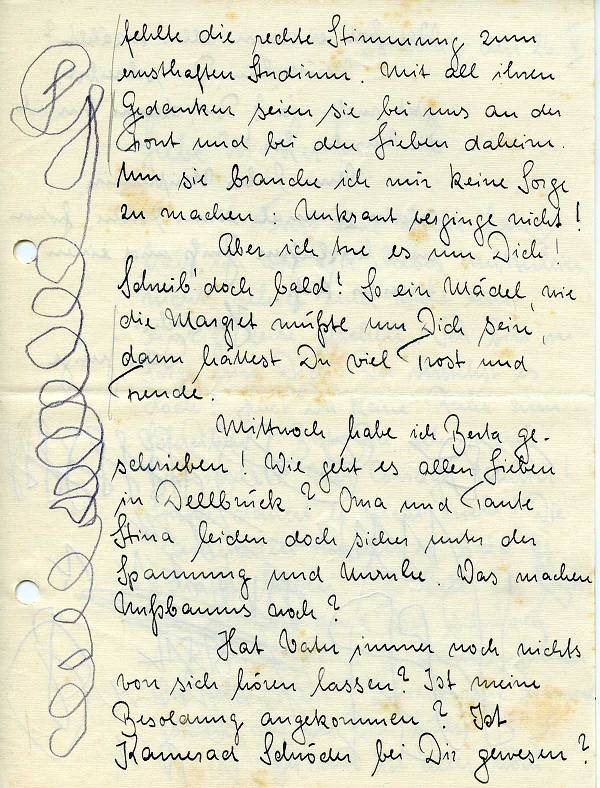 fehlte die rechte Stimmung zum
ernsthaften Studium. Mit all ihren
Gedanken seien sie bei uns an der
Front und bei den Lieben daheim.
Um sie brauche ich mir keine Sorge
zu machen: Unkraut verginge nicht!
Aber ich tue es um Dich!
Schreib' doch bald! So ein Mädel, wie
die Margret müßte um Dich sein,
dann hättest Du viel Trost und
Freude.
Mittwoch habe ich Berta ge-
schrieben! Wie geht es allen Lieben
in Dellbrück? Oma und Tante
Stina leiden doch sicher unter der
Spannung und Unruhe. Was machen
Nußbaums noch?
Hat Vater immer noch nichts
von sich hören lassen? Ist meine
Besoldung angekommen? Ist
Kamerad Schröder bei Dir gewesen?